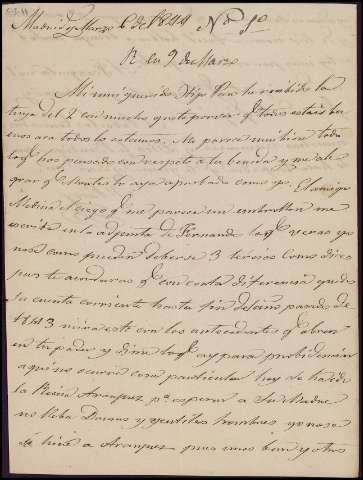 Madrid y Marzo 6 de 1844 Nº 9º
R. en 9 de Marzo
Mi muy querido Hijo Pan he recibido la
tuya del 2 con mucho gusto por ver q. todos estais bu
enos aca todos lo estamos. Me parece muy bien todo
lo q. has pensado con respeto a la benida y me ale
grare q. lo aya aprobado como yo. El amigo
Medina el ciego q. me parece un me
escribe en la adjunta de Fernando lo q. veras yo
no se como pueden deberse 3 tercios como dice
pues te acordaras q. con corta diferencia quedo
su cuenta corriente hasta fin del año pasado de
1843 mira esto con los antecedentes q. obren
en tu poder y dime lo q. ay para
aqui no ocurre cosa particular hoy ha salido
la Reina Aranjuez pª esperar a Su Madre
no lleba Damas y gentiles hombres yo no se
si iré a Aranjuez pues unos ban y otros